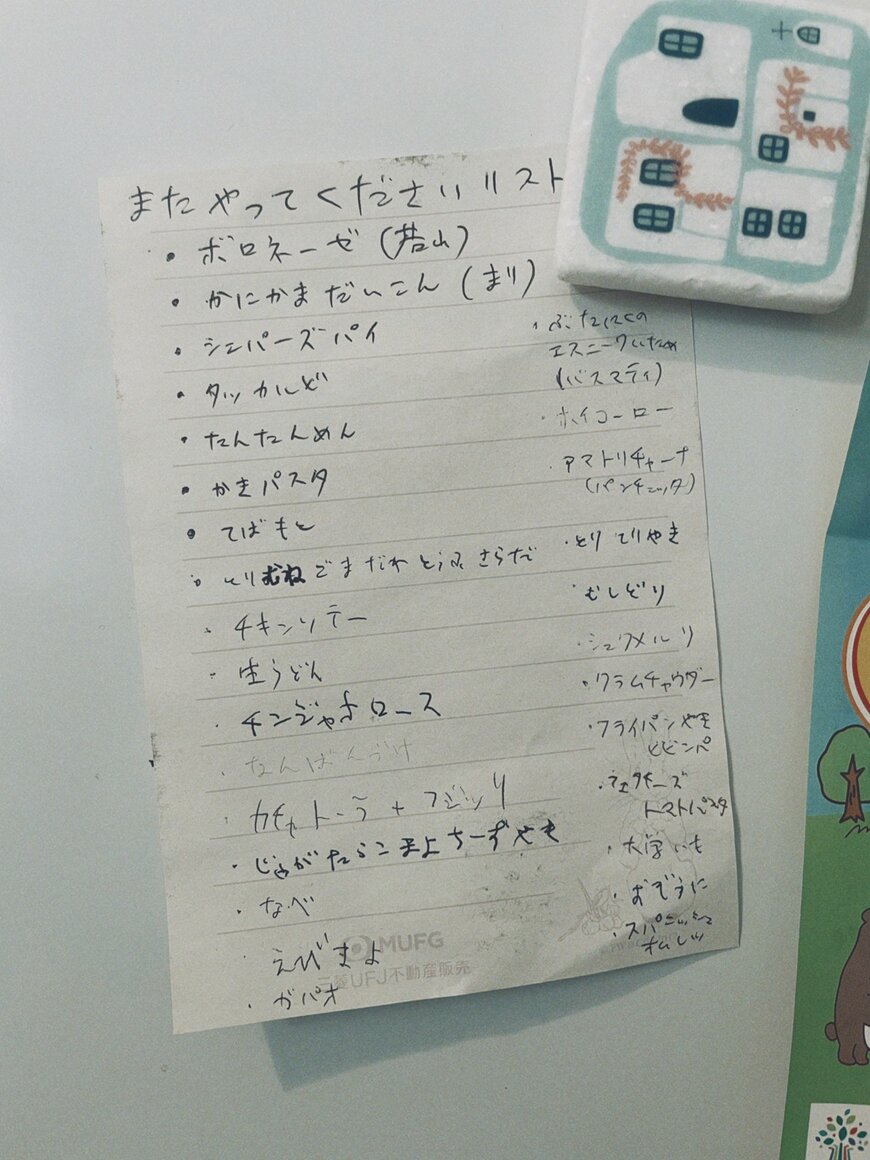 またやってくださいリスト
・ボロネーゼ(若山)
・かにかまだいこん(まり)
・シェパーズパイ
・タッカルビ
・たんたんめん
・かきパスタ
・てばもと
・とりむねごまだれとうふさらだ
・チキンソテー
・生うどん
・チンジャオロース
・なんばんづけ
・カチャトーラ+フジッリ
・じゃがたらこまよちーずやき
・なべ
・えびまよ
・ガパオ
・ぶたにくの
エスニークいため
(バスマティ)
・ホイコーロー
・アマトリチャーナ
(パンチェッタ)
・とりてりやき
・むしどり
・シュクメルリ
・クラムチャウダー
・フライパンやき
ビビンバ
・ツナチーズ
トマトパスタ
・大学いも
・おぞうに
・スパニッシュ
オムレツ
MUFG
三菱UFJ不動産販売